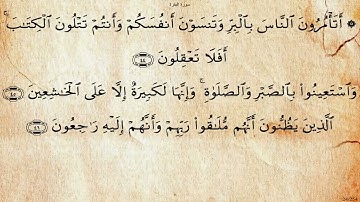 سورة البقرة
۞ أَتَأْمُرُونَ ٱلنَّاسَ بِٱلْبِرِّ وَتَنسَوْنَ أَنفُسَكُمْ وَأَنتُمْ تَتْلُونَ ٱلْكِتَٰبَ ۚ
أَفَلَا تَعْقِلُونَ ٤٤
وَٱسْتَعِينُوا۟ بِٱلصَّبْرِ وَٱلصَّلَوٰةِ ۚ وَإِنَّهَا لَكَبِيرَةٌ إِلَّا عَلَى ٱلْخَٰشِعِينَ ٤٥
ٱلَّذِينَ يَظُنُّونَ أَنَّهُم مُّلَٰقُوا۟ رَبِّهِمْ وَأَنَّهُمْ إِلَيْهِ رَٰجِعُونَ ٤٦